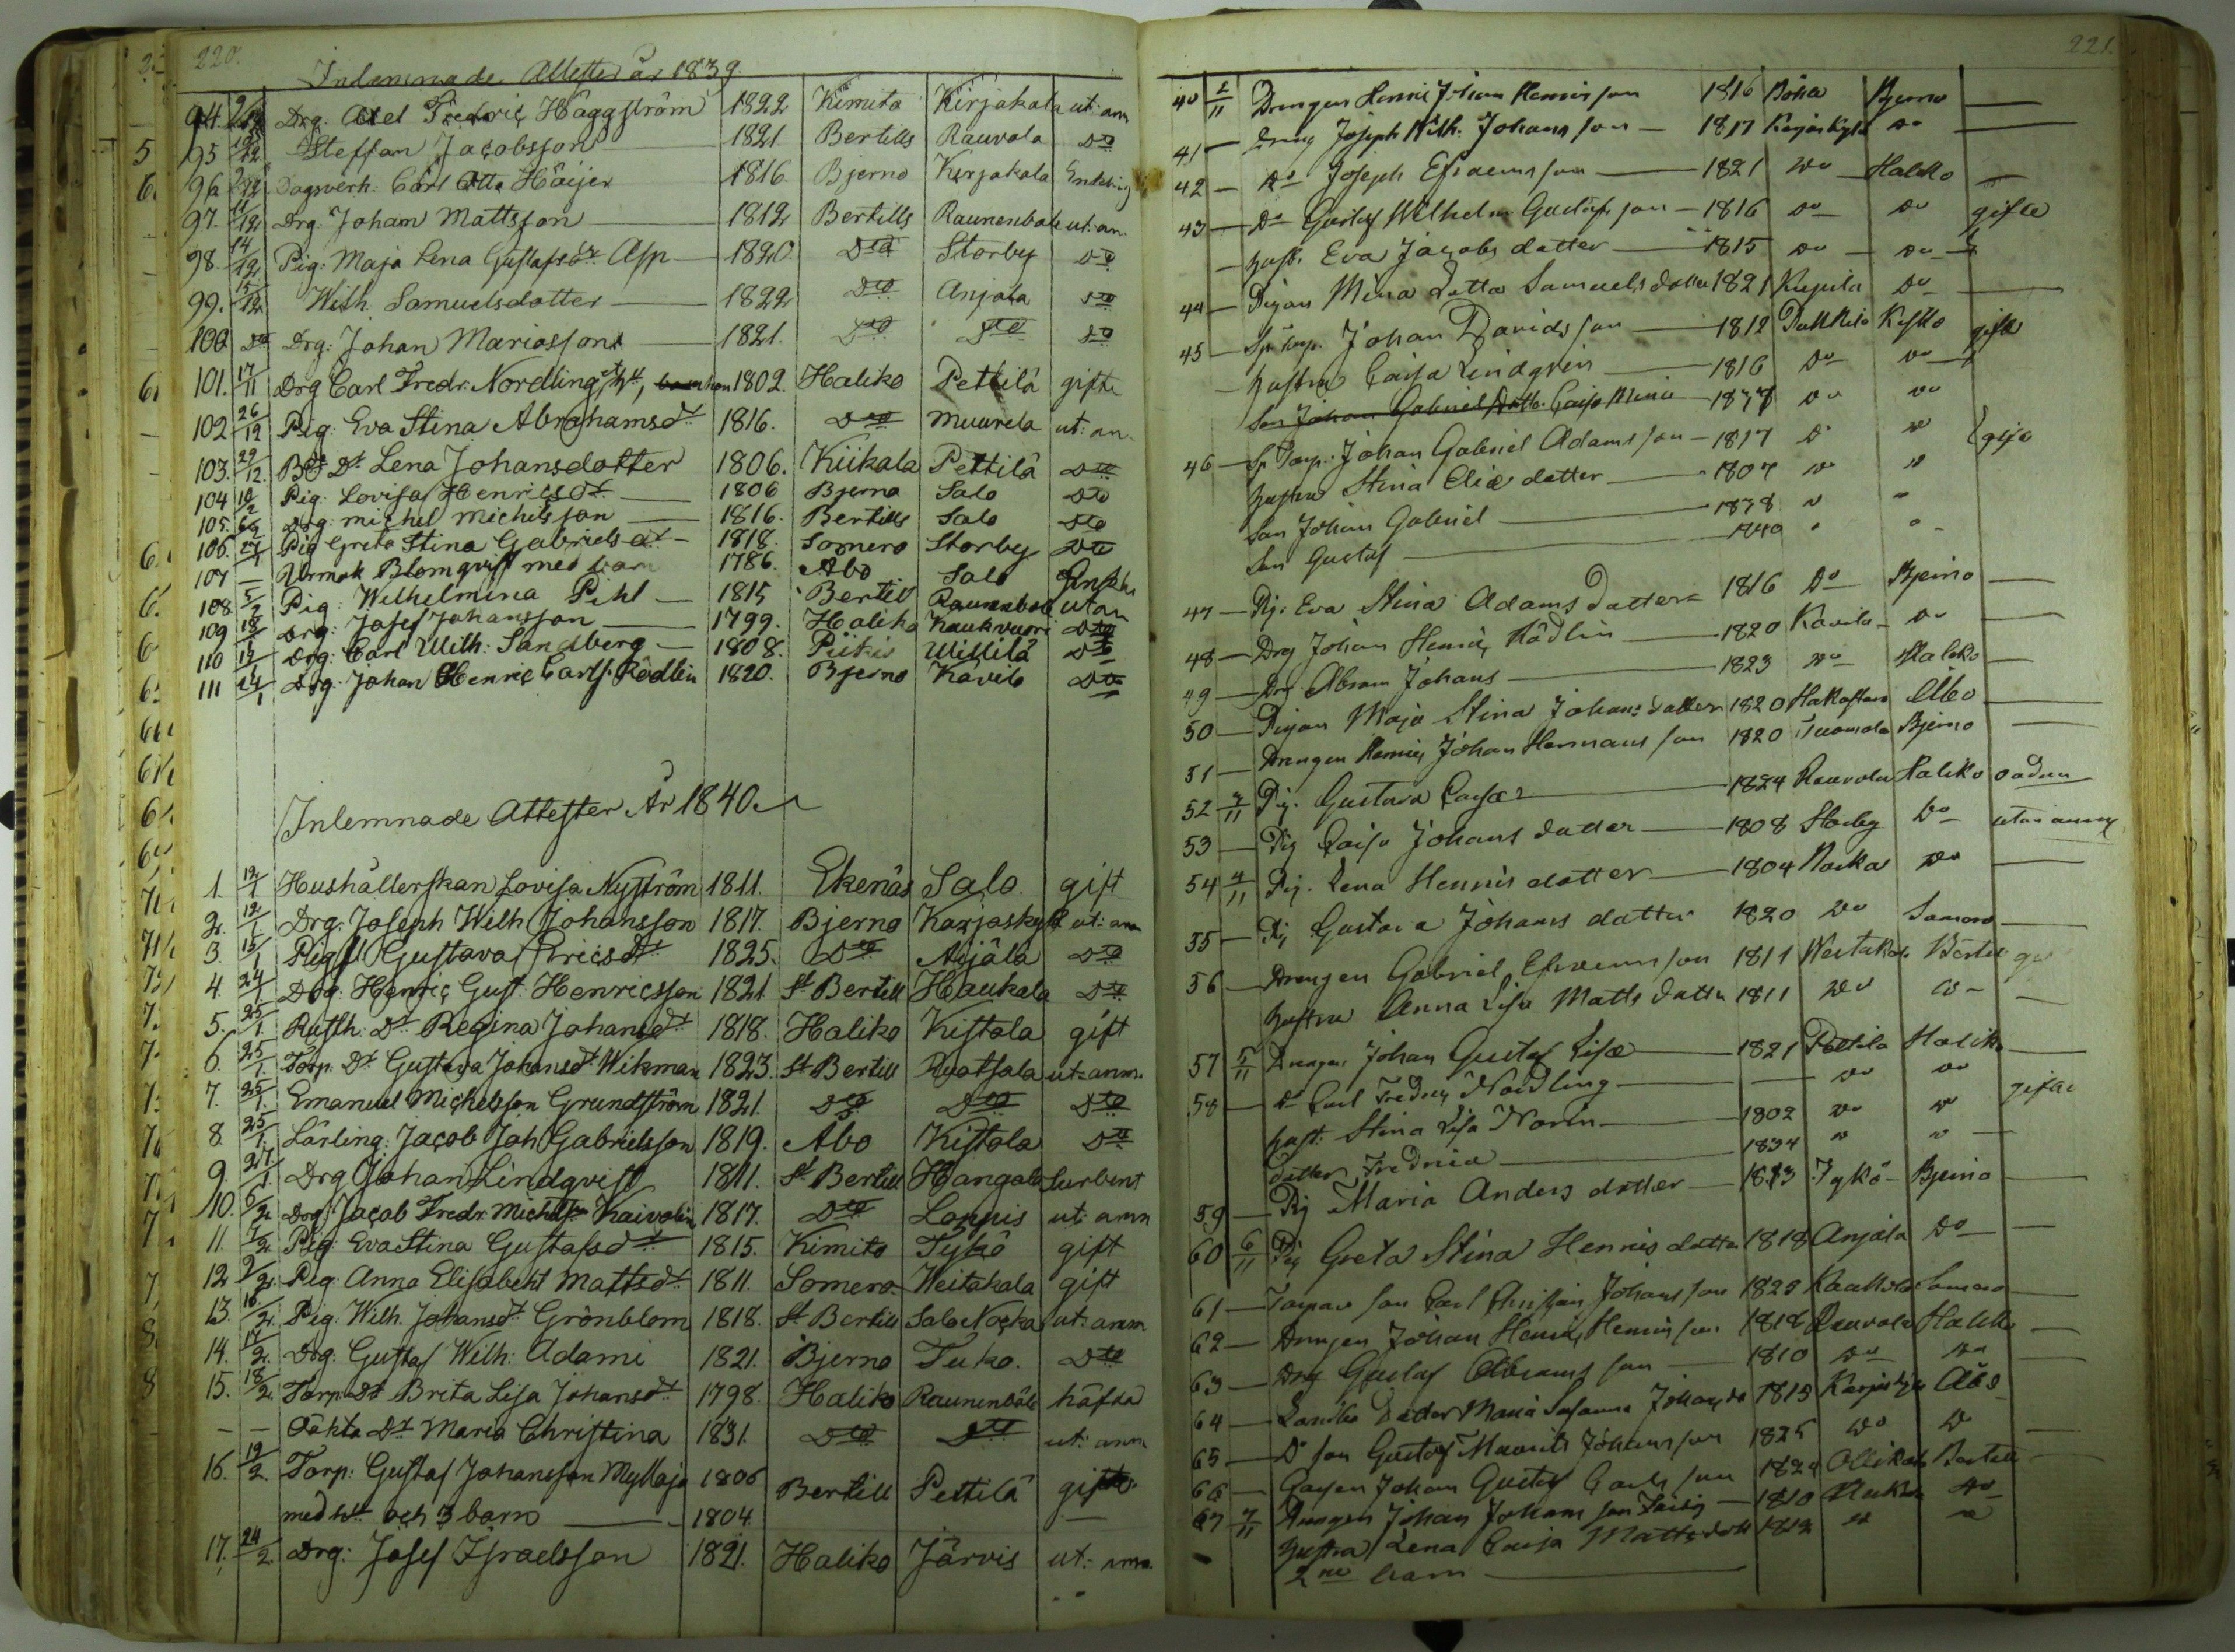 220.
Inlemnade Attester år 1839.
94. 9/12 Drg. Axel Fredric Häggström 1822 Kimito Kirjakala ut: anm
95 Steffan Jacobsson 1821 Bertills Rauvola Dto
96 Dagsverk: Carl Otto Höijer 1816. Bjerno Kirjakala
97. 11/12 Drg: Johan Mattsson 1812 Bertills Raunenbole ut: an.
98. 14/12 Pig: Maja Lena Gustafsdr Asp 1820 Dto Storby Dto
99. 15/12 Wilh. Samuelsdotter 1822 Dto Anjala Dto
100 Dto Drg: Johan Mariasson 1821. Dto Dto Dto
101. 17/11 Drg Carl Fredr. Nordling 1802. Haliko Pettilä gifte
102 26/12 Pig: Eva Stina Abrahamsdt 1816. Dto Muurela ut: an.
103. 29/12. Dt Lena Johansdotter 1806. Kiikala Pettilä Dto
104 Pig: Lovisa Henricsdt 1806 Bjerno Salo Dto
105. Drg: Michel Michelsson 1816. Bertills Salo Dto
106. 27/1 Pig Greta Stina Gabrielsdt 1818. Somero Storby Dto
107 — Blomqvist med barn 1786. Åbo Salo
108 5/2 Pig: Wilhelmina Pihl 1815 Bertill Raunenbole ut an
109 Drg: Josef Johansson 1799. Haliko Kaukvuori Dto
110 Drg: Carl Wilh: Sandberg 1808. Piikis Willilä Dto
111 Drg: Johan Henric Carlss. Rödlin 1820. Bjerno Kavila Dto
Inlemnade Attester År 1840
1. 12/1 Hushållerskan Lovisa Nyström 1811. Ekenäs Salo gift
2. 12/1 Drg: Joseph Wilh Johansson 1817. Bjerno Karjaskylä ut: anm
3. 15/1 Pig Gustava Ericsdt 1825. Dto Arjälä Dto
4. 24/1 Drg: Henric Gust: Henricsson 1821 St Bertill Haukala Dto
5. 25/1. Rusth: Dt Regina Johansdt 1818. Haliko Kistola gift
6. 25/1. Torp: Dt Gustava Johansdt Wikman 1823. St Bertill Ruotsala ut: anm.
7. 25/1. Emanuel Michelsson Grundström 1821. Dto Dto Dto
8. 25/1. Lärling: Jacob Joh Gabrielsson 1819. Åbo Kistola Dto
9. 27/1. Drg Johan Lindqvist 1811. St Bertill Hangola
10. 6/2 Drg: Jacob Fredr. Michelsson Kaivolin 1817. Dto Loppis ut: anm
11. 7/2. Pig: Eva Stina Gustafsdt 1815. Kimito Tykö gift
12 9/2. Pig: Anna Elisabeht Mattsdt 1811. Somero Weitakala gift
13. 16/2. Pig: Wilh. Johansdt Grönblom 1818. St Bertill Salo Nocka ut: anm
14. 17/2. Drg: Gustaf Wilh: Adami 1821. Bjerno Tuko. Dto
15. 18/2. Torp: Dt Brita Lisa Johansdt 1798. Haliko Raunenbåle häfdad
– – Oäkta Dt Maria Christina 1831. Dto Dto ut: anm
16. 19/2. Torp: Gustaf Johansson Myllaja 1806 Bertill Pettilä gifte
med h: och 3 barn 1804.
17. 24/2. Drg: Josef Isralsson 1821. Haliko Järvis ut: anm.
221.
40 2/11 Drengen Henric Johan Henricsson 1816 Bjerno
41 — Dreng Joseph Wilh. Johansson 1817 Karjaskylä Do
42 — Do Joseph Efraemsson 1821 Do Haliko
43 — Do Gustaf Wilhelm Gustafsson 1816 Do Do gifte
hust. Eva Jacobsdotter 1815 Do Do
44 — Pigan Mina Lotta Samuelsdotter 1821 Do
45 — Johan Davidsson 1812 Kisko gifte
hustru Caisa Lindgrén 1816 Do Do
Son Johan Gabriel Caisa Mina Do Do
46 — Johan Gabriel Adamsson 1817 Do gifte
hustru Stina Eliædotter 1807
Son Johan Gabriel 1838
Son Gustaf 1840
47 — Pig. Eva Stina Adamsdotter 1816 Do Bjerno
48 — Drg Johan Henric Rödlin 1820 Kavila Do
49 — Drg Abram Johans 1823 Do Haliko
50 — Pigan Maja Stina Johansdotter 1820 Åbo
51 — Drengen Henric Johan Hermansson 1820 Tuomola Bjerno
52 Pig. Gustava 1824 Rauvola Haliko
53 — Pig Caisa Johansdotter 1808 Storby Do utan anm
54 4/11 Pig. Lena Henricsdotter 1804 Nocka Do
55 — Pig Gustava Johansdotter 1820 Do Somero
56 — Drengen Gabriel Efraemsson 1811 Bertill
hustru Anna Lisa Mattsdotter 1811 Do
57 5/11 Drengen Johan Gustaf Lisæ 1821 Pettilä Haliko
58 — Do Carl Fredric Nordling Do Do gifte
hust: Stina Lisa Norin 1802 Do
dotter Fredrica 1834
59 — Pig Maria Andersdotter 1813 Tykö Bjerno
60 6/11 Pig Greta Stina Henricsdotter 1818 Anjala Do
61 — son Carl Christian Johansson 1825 Somero
62 — Drengen Johan Henric Henricsson 1818 Rauvola Haliko
63 — Drg Gustaf Abramsson 1810 Do Do
64 — dotter Maria Susanna 1815 Åbo
65 — Do son Gustaf Maurits Johansson 1825 Do Do
66 — Johan Gustaf Carlsson Bertill
67 7/11 Drengen Johan Johansson 1810 Do
hustru Lena Caisa Mattsdott 1812
2ne barn